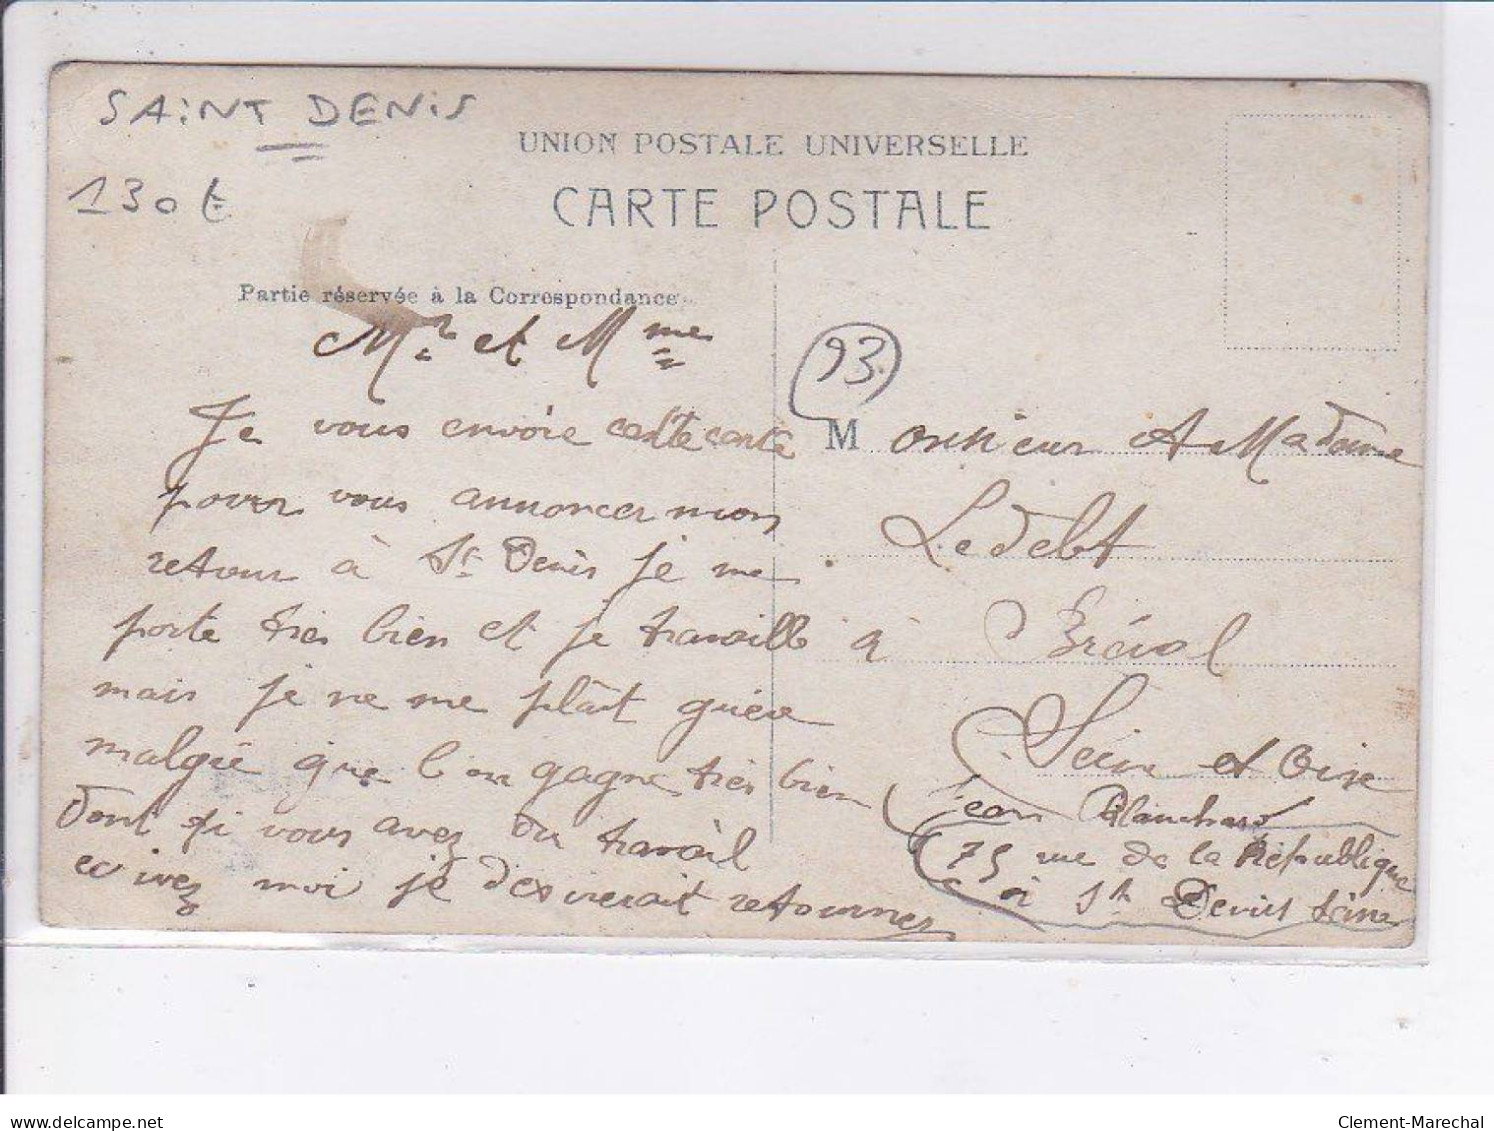 SAINT DENIS
130€
UNION POSTALE UNIVERSELLE
CARTE POSTALE
Partie réservée à la Correspondance
Mr et Mme
Je vous envoie cette carte
pour vous annoncer mon
retour à St Denis je me
porte très bien et je travaille
mais je ne me plait guère
malgré que l'on gagne très bien
Dont si vous avez du travail
ecivez moi je desirerait retourner
93
Monsieur et Madame
Ledebt
à Bréval
Seine et Oise
Jean Blanchard
75 rue de la République
à St Denis Seine
delcampe.net
Clement-Marechal